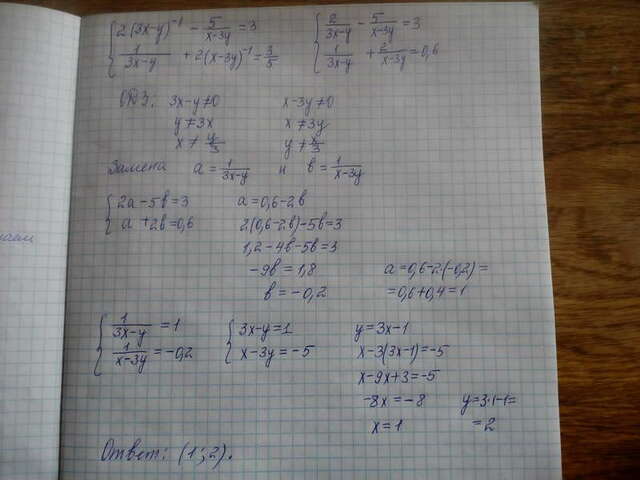 { 2(3x-y)⁻¹ - 5/(x-3y) = 3    { 2/(3x-y) - 5/(x-3y) = 3
{ 1/(3x-y) + 2(x-3y)⁻¹ = 3/5    { 1/(3x-y) + 2/(x-3y) = 0,6
ОДЗ: 3x-y≠0    x-3y≠0
y≠3x    x≠3y
x≠y/3    y≠x/3
Замена a=1/(3x-y) и b=1/(x-3y)
{ 2a-5b=3    a=0,6-2b
{ a+2b=0,6    2(0,6-2b)-5b=3
1,2-4b-5b=3
-9b=1,8    a=0,6-2·(-0,2)=
b=-0,2    =0,6+0,4=1
{ 1/(3x-y) = 1    { 3x-y=1    y=3x-1
{ 1/(x-3y) = -0,2    { x-3y=-5    x-3(3x-1)=-5
x-9x+3=-5
-8x=-8    y=3·1-1=
x=1    =2
Ответ: (1;2).